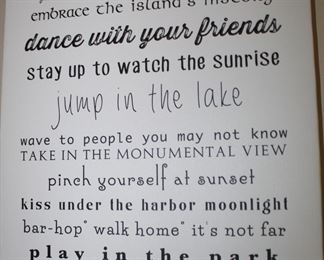 embrace the island's
dance with your friends
stay up to watch the sunrise
jump in the lake
wave to people you may not know
TAKE IN THE MONUMENTAL VIEW
pinch yourself at sunset
kiss under the harbor moonlight
bar-hop* walk home* it's not far
play in the park